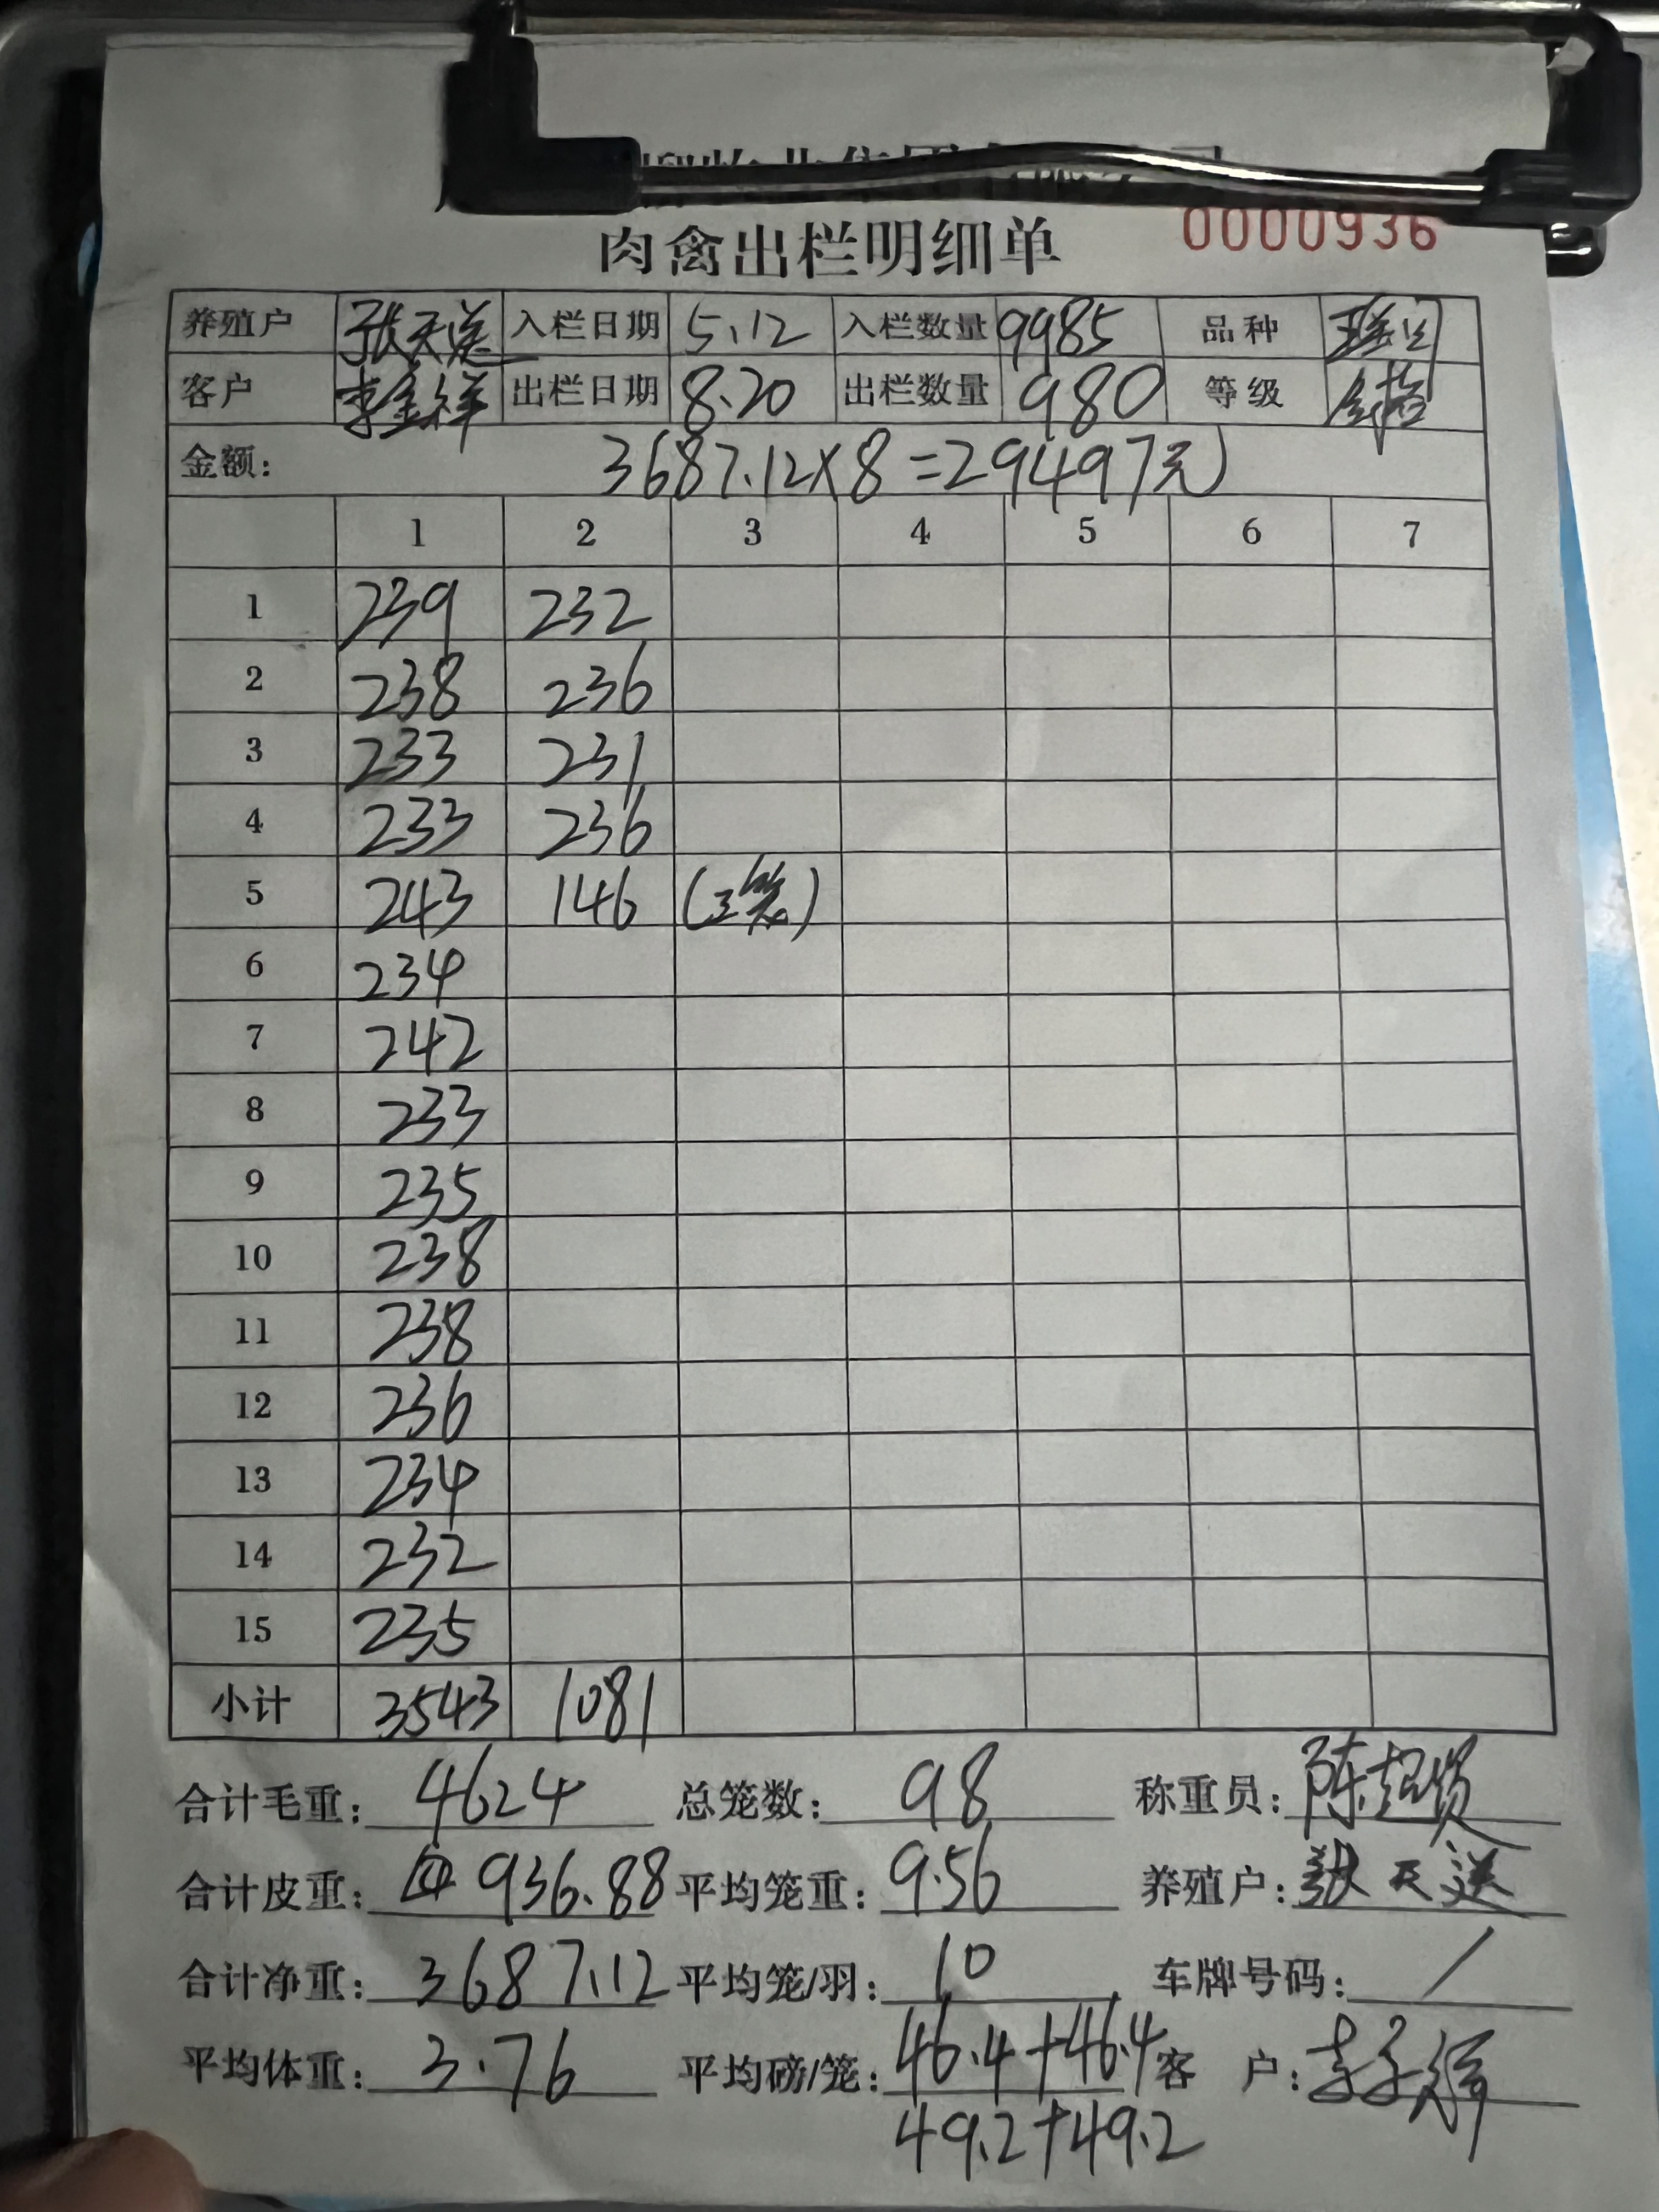 肉禽出栏明细单 0000936
养殖户 张天送 入栏日期 5.12 入栏数量 9985 品种
客户 李金祥 出栏日期 8.20 出栏数量 980 等级
金额: 3687.12×8=29497元
1 2 3 4 5 6 7
1 239 232
2 238 236
3 233 231
4 233 236
5 243 146 (3笼)
6 234
7 242
8 233
9 235
10 238
11 238
12 236
13 234
14 232
15 235
小计 3543 1081
合计毛重: 4624 总笼数: 98 称重员: 陈超贤
合计皮重: 936.88 平均笼重: 9.56 养殖户: 张天送
合计净重: 3687.12 平均笼/羽: 10 车牌号码: /
平均体重: 3.76 平均磅/笼: 46.4+46.4 客 户:
49.2+49.2